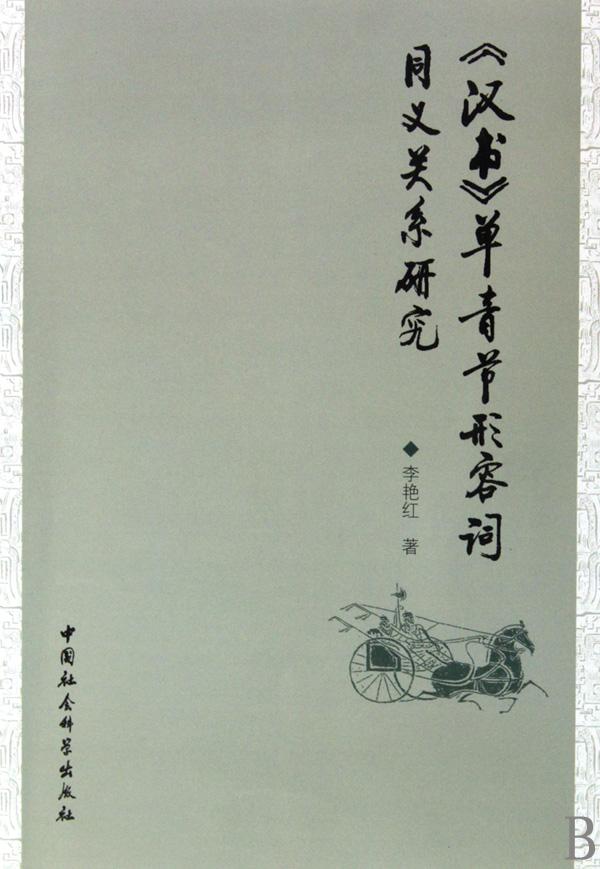 《汉书》单音节形容词
同义关系研究
◆李艳红 著
中国社会科学出版社
B